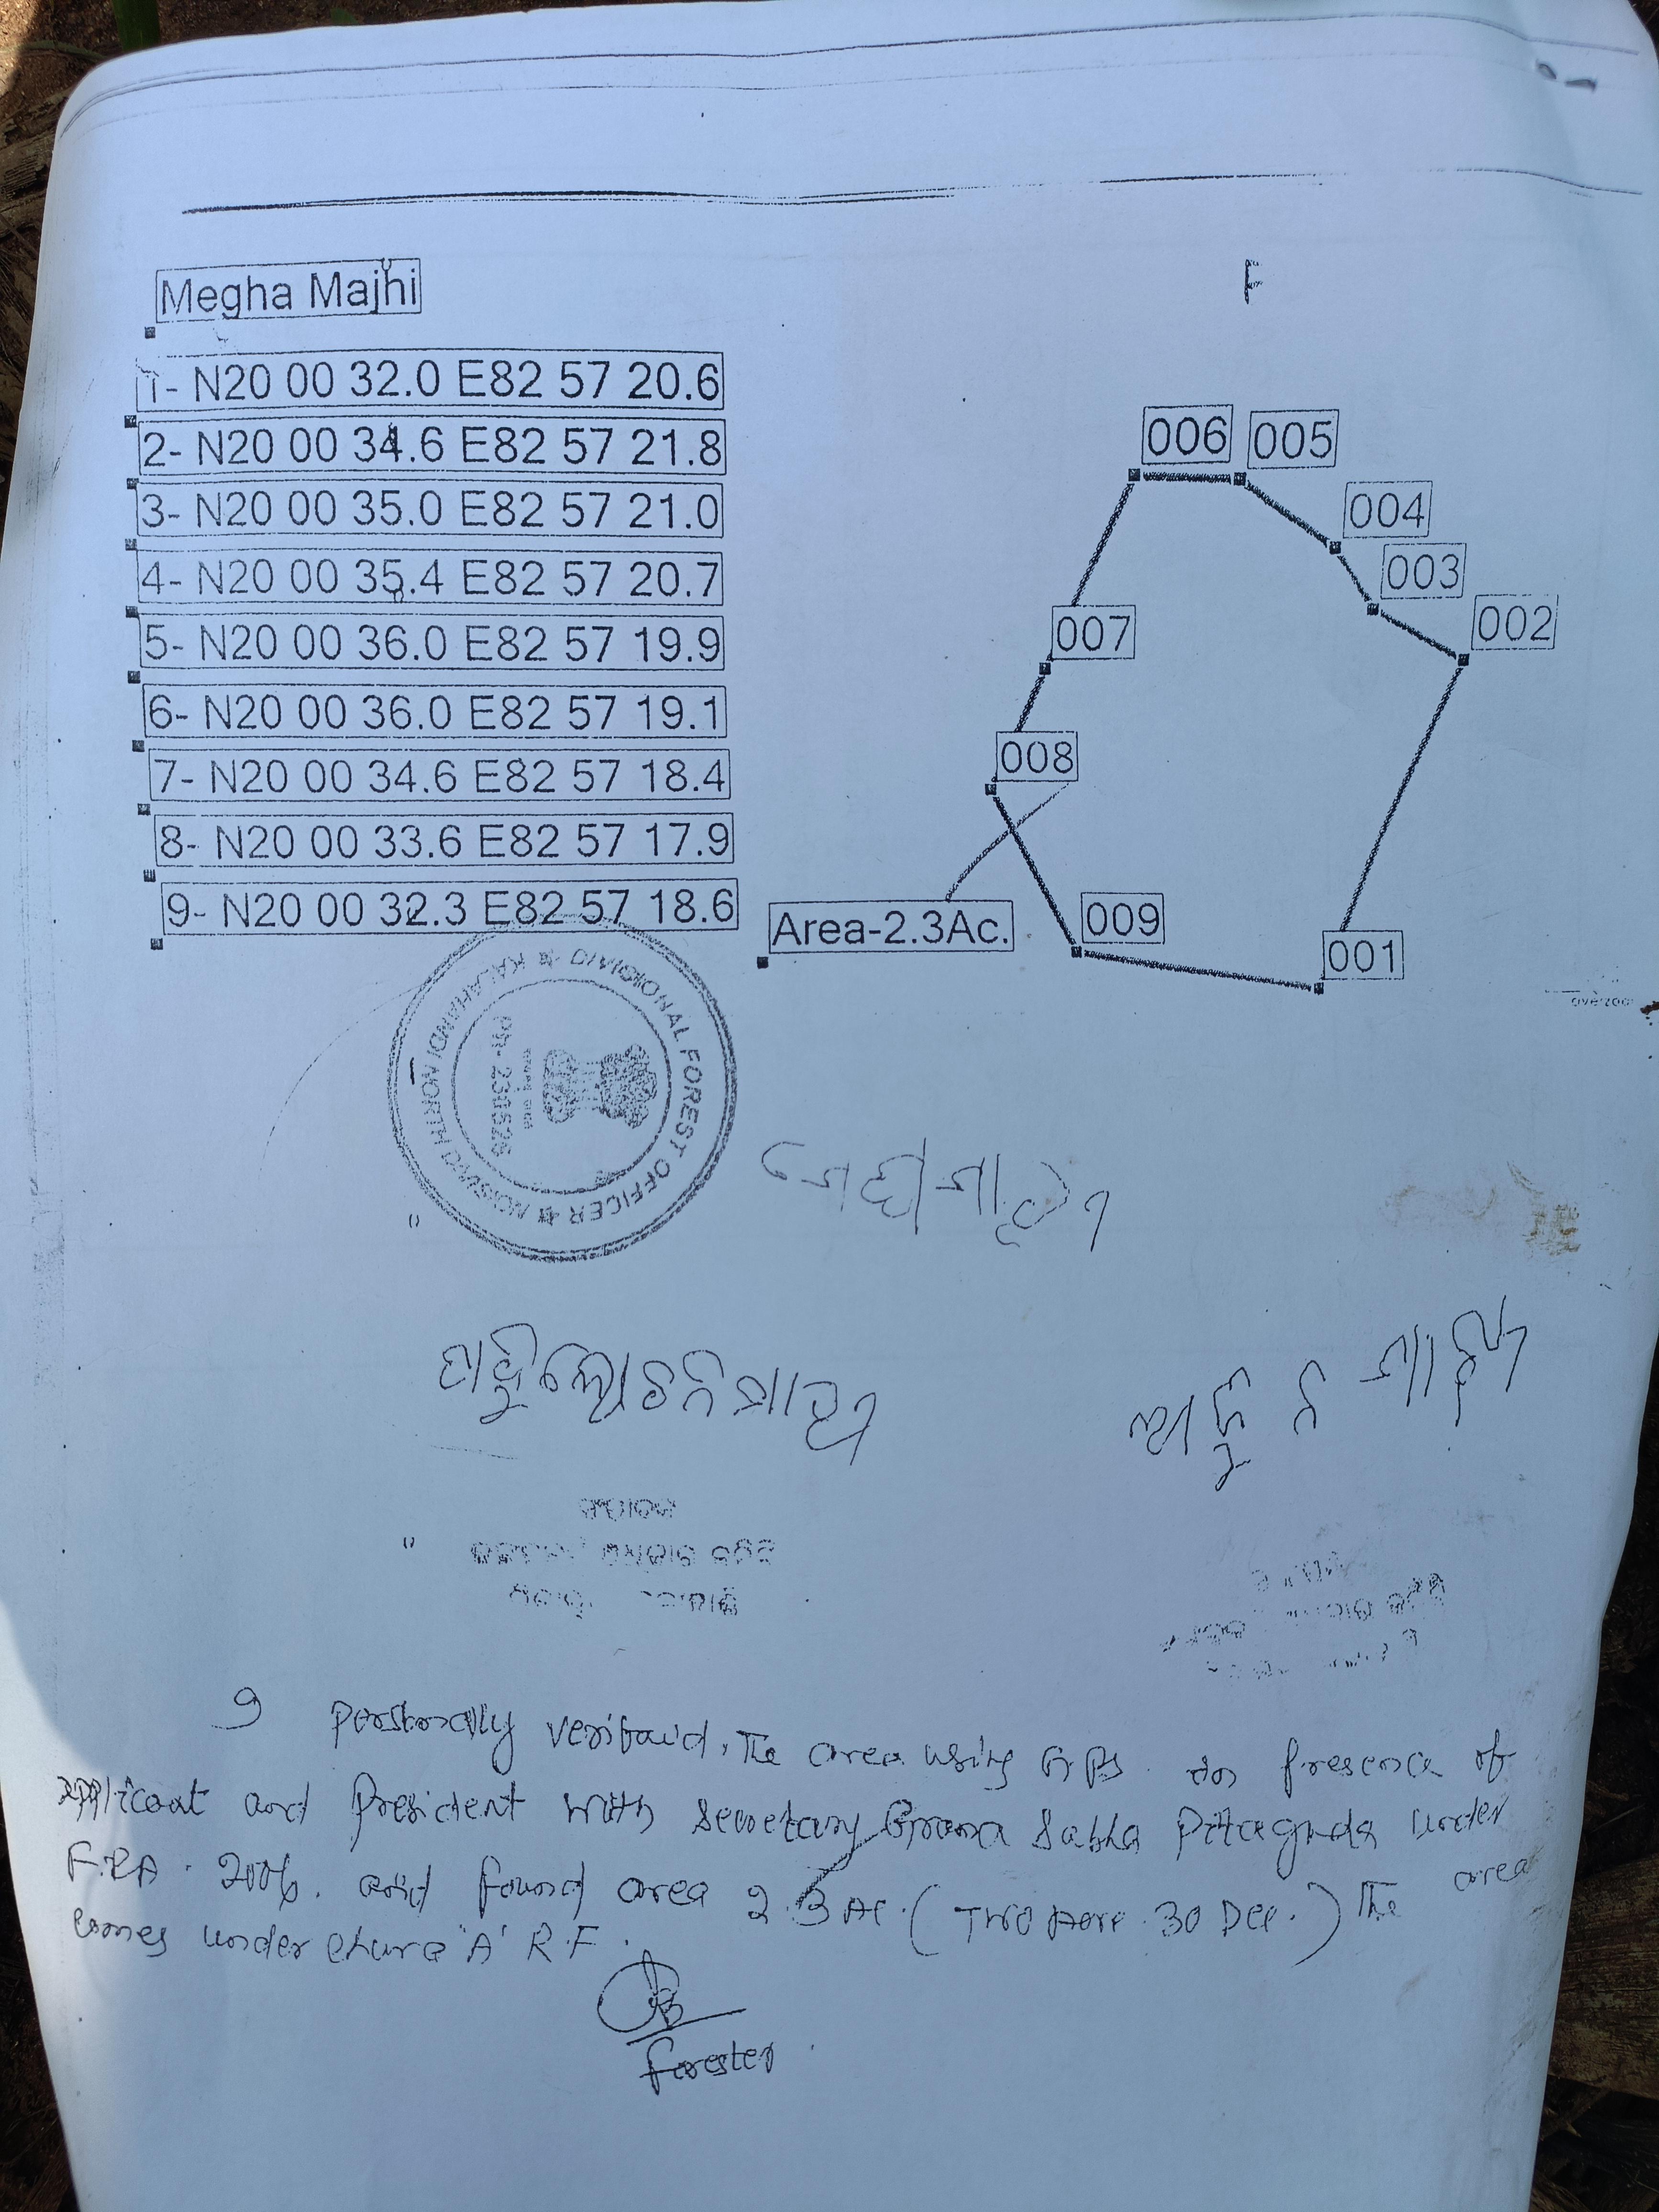 Megha Majhi
F
1- N20 00 32.0 E82 57 20.6
2- N20 00 34.6 E82 57 21.8
3- N20 00 35.0 E82 57 21.0
4- N20 00 35.4 E82 57 20.7
5- N20 00 36.0 E82 57 19.9
6- N20 00 36.0 E82 57 19.1
7- N20 00 34.6 E82 57 18.4
8- N20 00 33.6 E82 57 17.9
9- N20 00 32.3 E82 57 18.6
006 005
004
003
002
007
008
009
001
Area-2.3Ac.
overzoom
DIVISIONAL FOREST OFFICER KALAHANDI NORTH DIVISION
ମେଘ ମାଝୀ
ମାଝୀ
ସମ୍ପାଦକ
ଅଧିକାର କମିଟି
I personally verifaid, The area using GPS in presence of
applicant and President with Secretary Grama Sabha Pitaguda under
F.R.A. 2006. and found area 2.3 Ac. (Two Acre 30 Dec.) The area
comes under 'A' R.F.
Forester